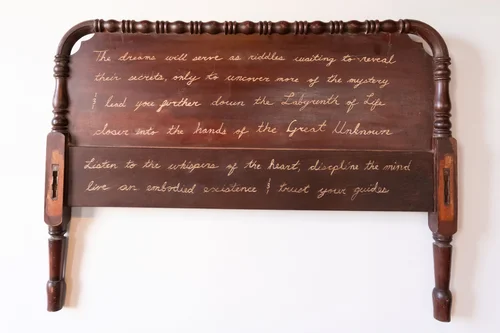 The dreams will serve as riddles waiting to reveal
their secrets, only to uncover more of the mystery
& lead you further down the Labyrenth of Life
closer into the hands of the Great Unknown
Listen to the whispers of the heart, discipline the mind
live an embodied existence & trust your guides